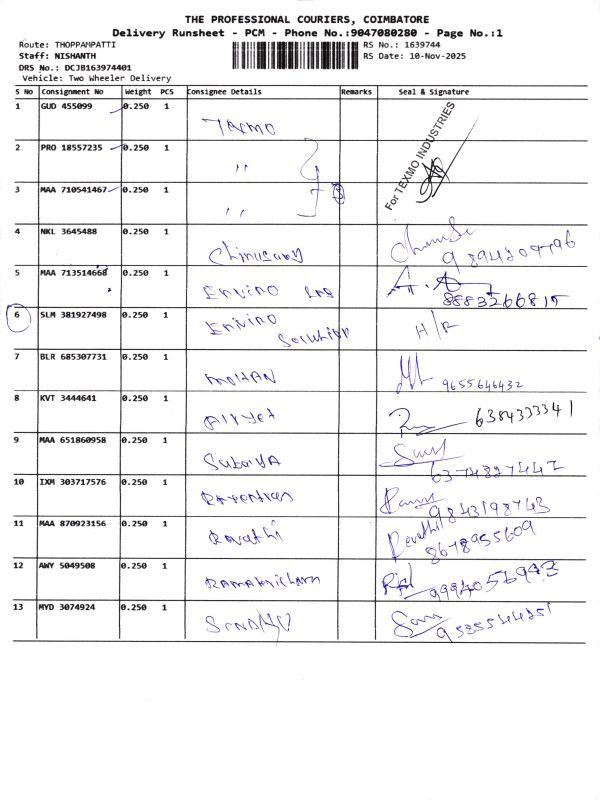 THE PROFESSIONAL COURIERS, COIMBATORE
Delivery Runsheet - PCM - Phone No.:9047080280 - Page No.:1
Route: THOPPAMPATTI RS No.: 1639744
Staff: NISHANTH RS Date: 10-Nov-2025
DRS No.: DCJB163974401
Vehicle: Two Wheeler Delivery
S No Consignment No Weight PCS Consignee Details Remarks Seal & Signature
1 GUD 455099 0.250 1 Texmo For TEXMO INDUSTRIES
2 PRO 18557235 0.250 1 "
3 MAA 710541467 0.250 1 " 3
4 NKL 3645488 0.250 1
5 MAA 713514668 0.250 1 Enviro 8883266815
6 SLM 381927498 0.250 1 Enviro H/R
Solution
7 BLR 685307731 0.250 1 MOHAN 9655646432
8 KVT 3444641 0.250 1 6384333341
9 MAA 651860958 0.250 1 6374827442
10 IXM 303717576 0.250 1 9843198743
11 MAA 870923156 0.250 1 Revathi Revathi
8678955609
12 AWY 5049508 0.250 1 9994056943
13 MYD 3074924 0.250 1